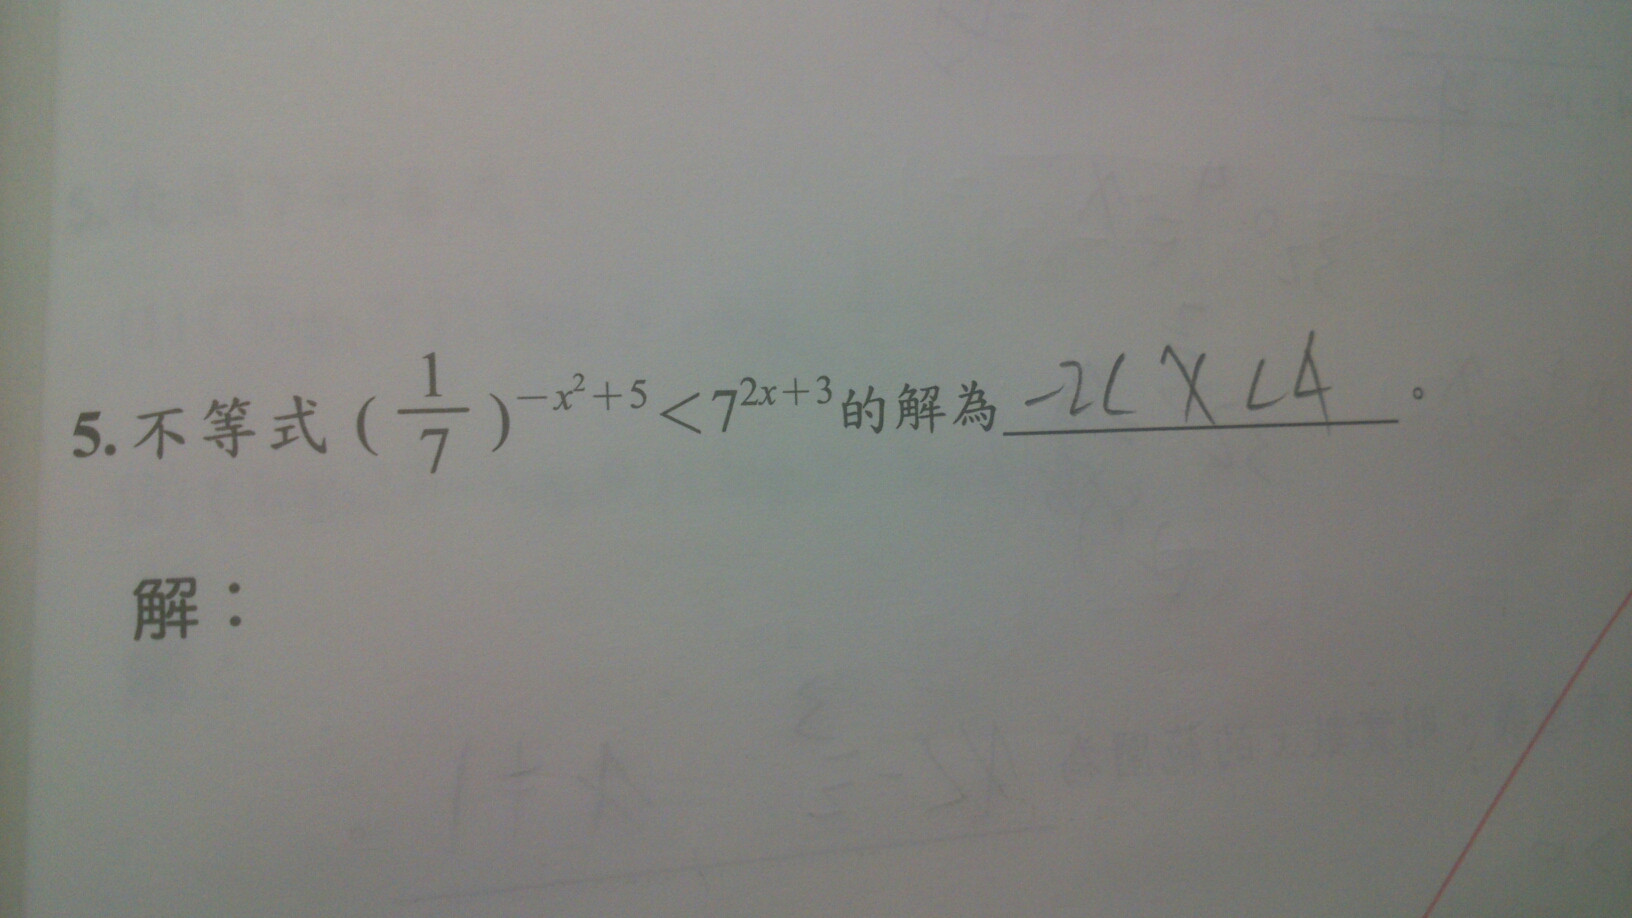 5. 不等式 (1/7)^{-x²+5} < 7^{2x+3} 的解為 -2< X <4 。
解：